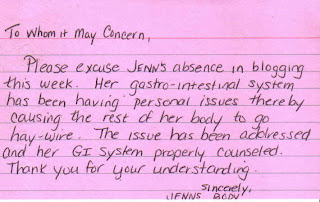 To Whom it May Concern,
Please excuse JENN'S absence in blogging
this week. Her gastro-intestinal system
has been having personal issues thereby
causing the rest of her body to go
hay-wire. The issue has been addressed
and her GI System properly counseled.
Thank you for your understanding.
Sincerely,
JENN'S BODY